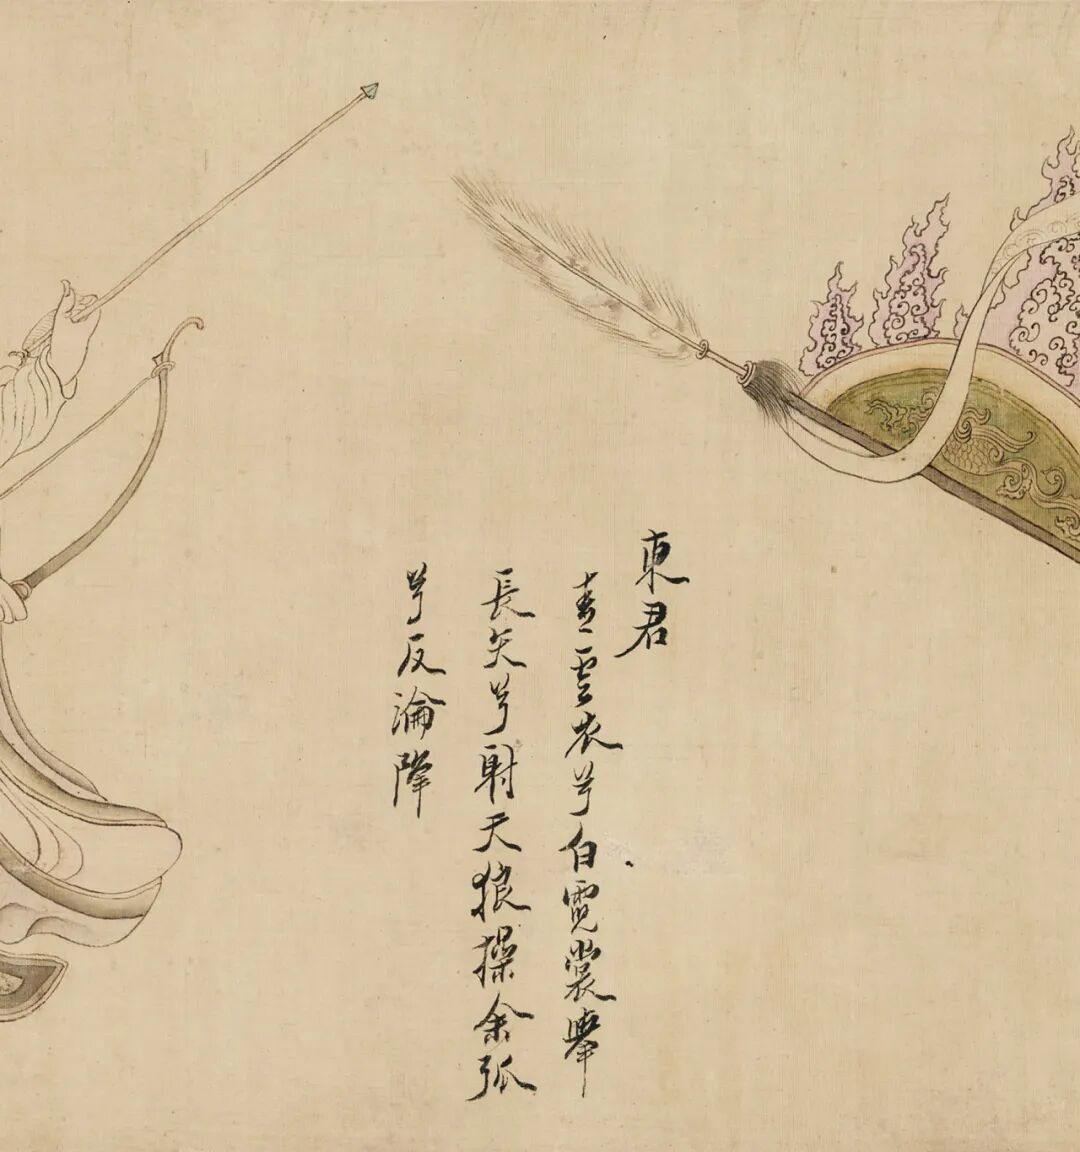 東君
青雲衣兮白霓裳舉
長矢兮射天狼操余弧
兮反淪降